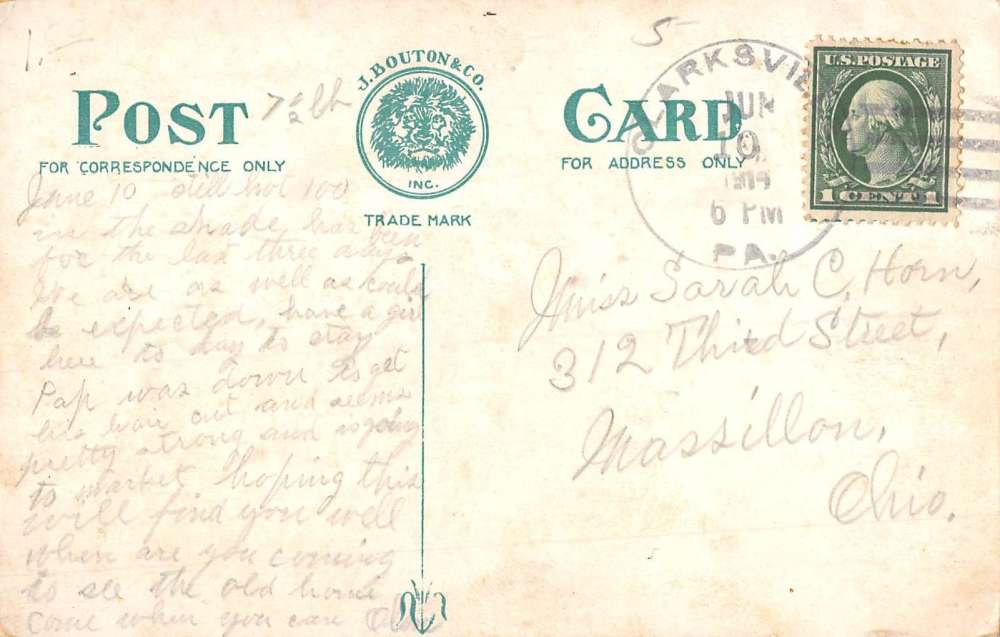 1.-
5-
POST
CARD
7½ lb
FOR CORRESPONDENCE ONLY
FOR ADDRESS ONLY
J. BOUTON & CO.
INC.
TRADE MARK
CLARKSVILLE
JUN
10
1914
6 PM
PA.
U.S. POSTAGE
1 CENT 1
June 10 still hot 100
in the shade has been
for the last three days
We are as well as could
be expected, have a girl
here to day to stay
Pap was down to get
his hair cut and seems
pretty strong and is going
to market hoping this
will find you well
when are you coming
to see the old home
come when you can
Miss Sarah C. Horn,
312 Third Street,
Massillon,
Ohio.